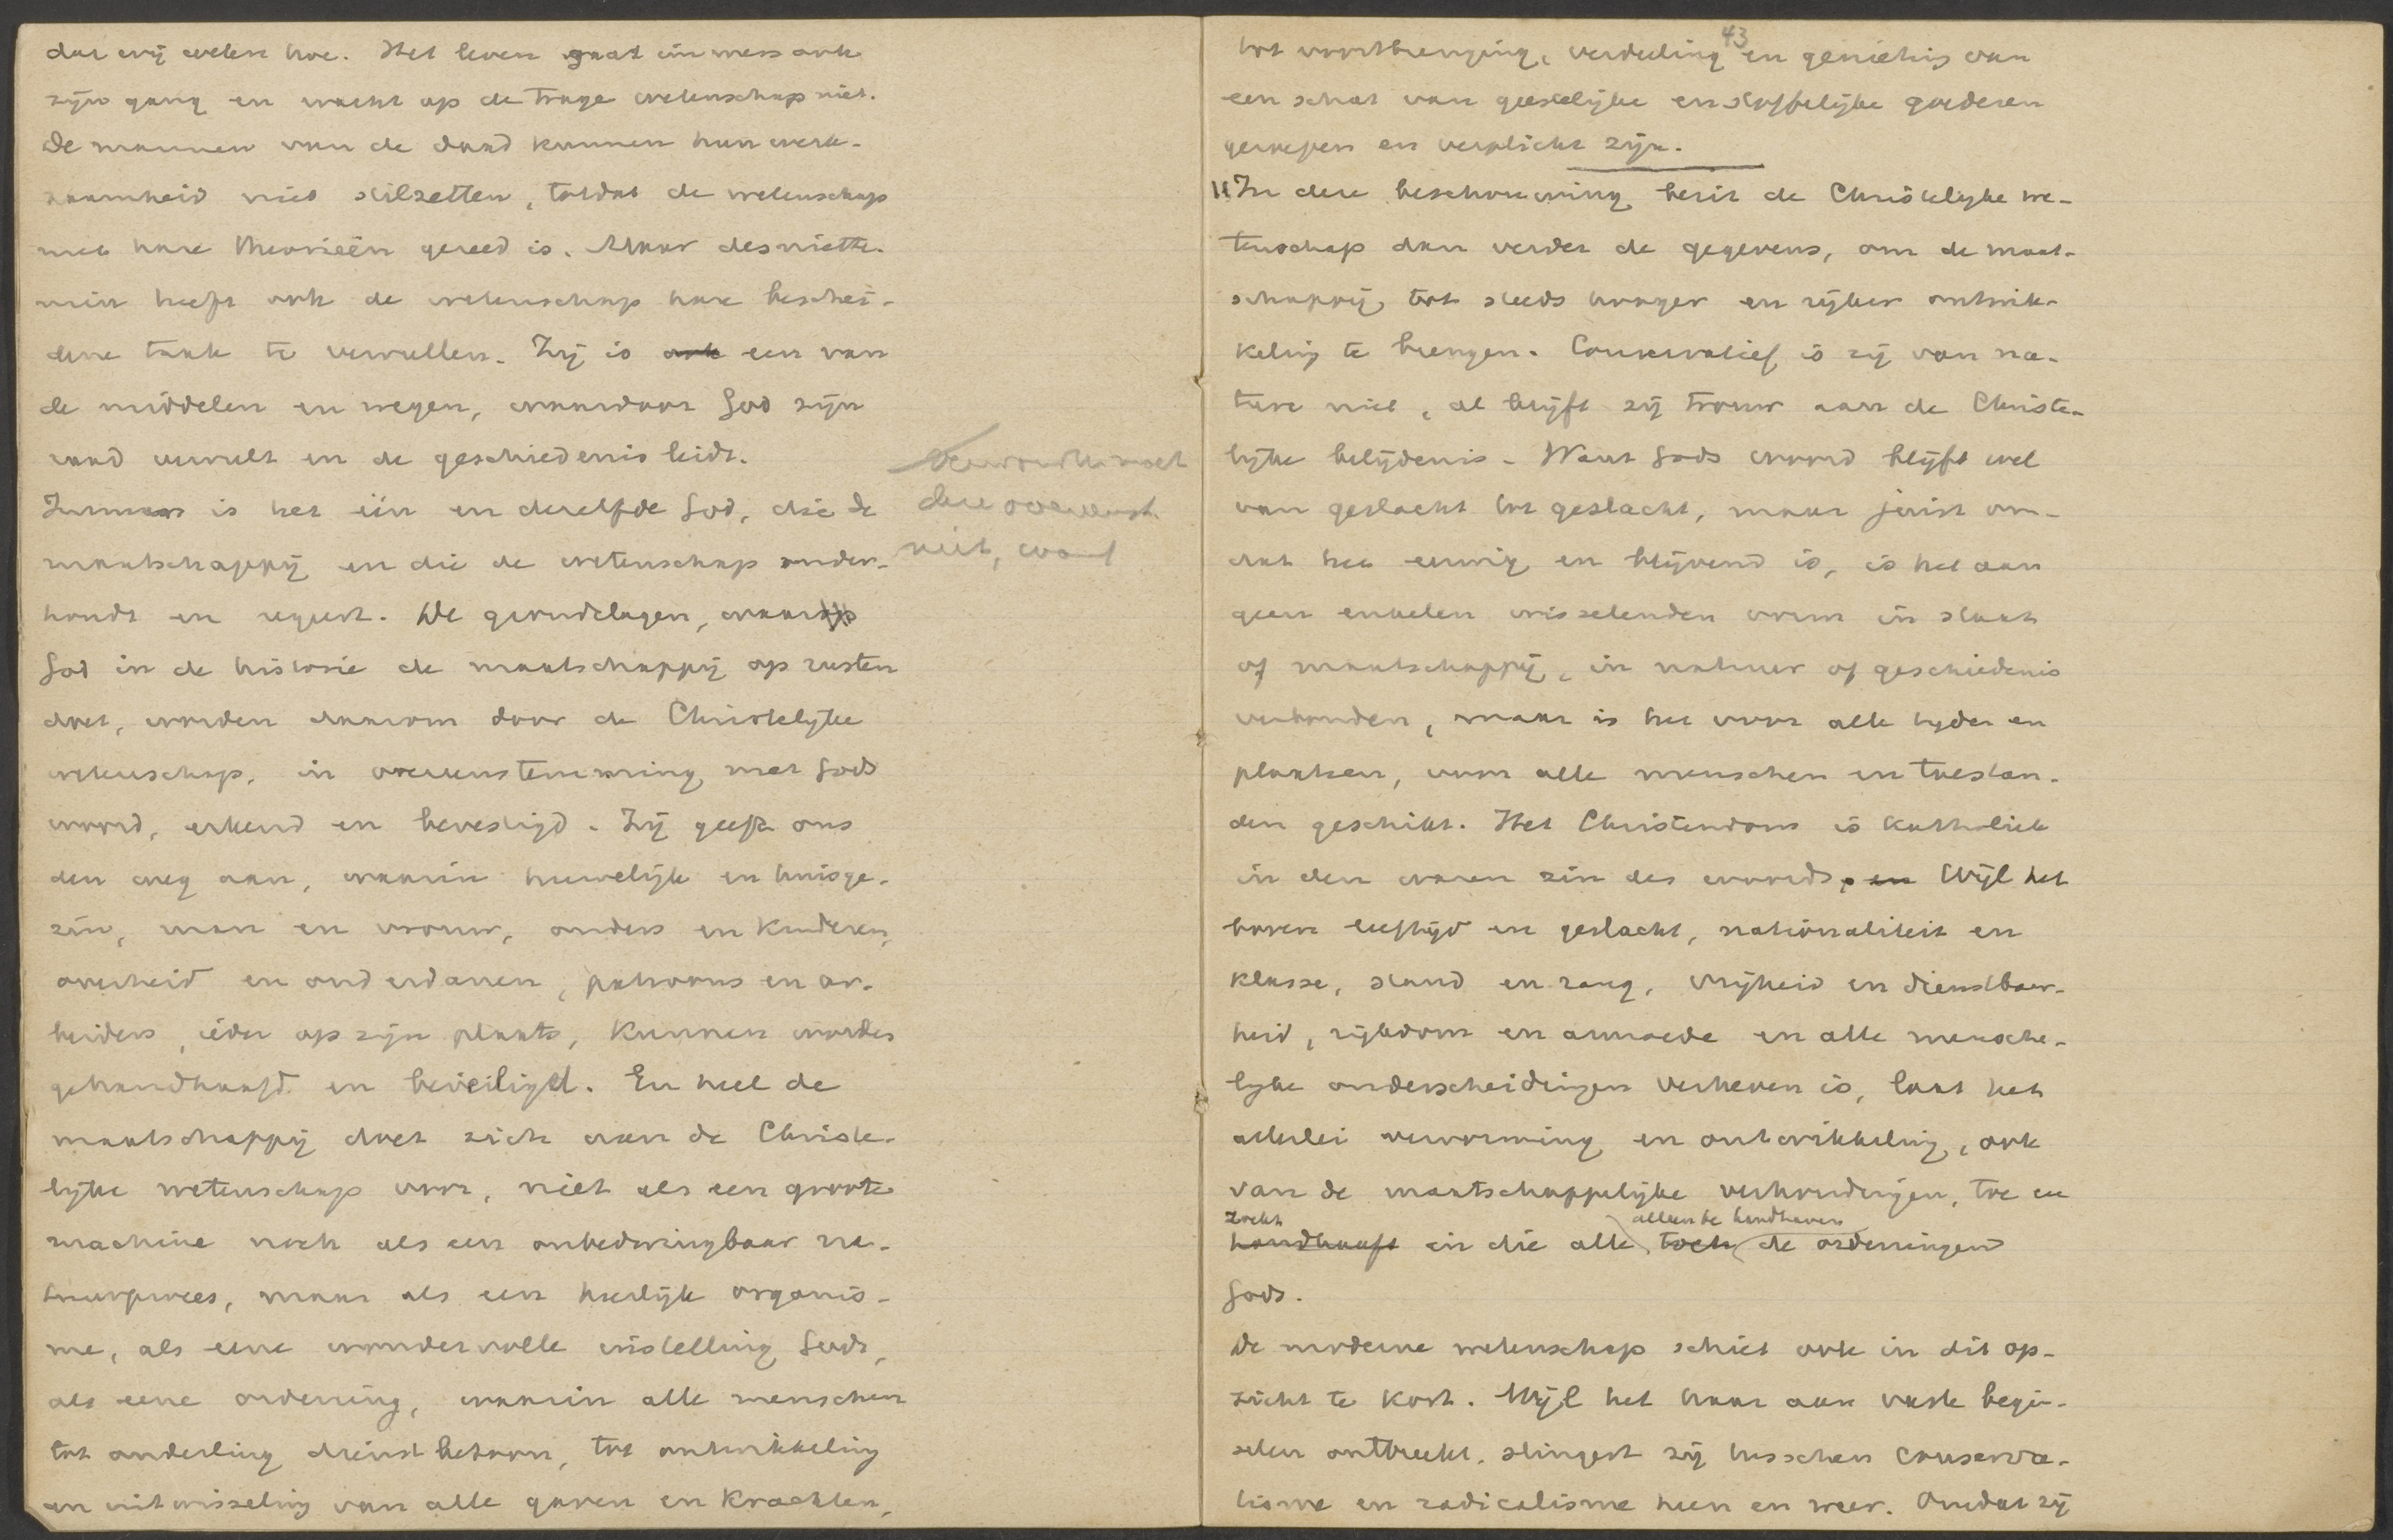 dat wij weten hoe. Het leven gaat immers ook
zijn gang en wacht op de trage wetenschap niet.
De mannen van de daad kunnen hun werk-
zaamheid niet stilzetten, totdat de wetenschap
met hare theorieën gereed is. Maar desniette-
min heeft ook de wetenschap hare beschei-
dene taak te vervullen. Zij is ook een van
de middelen en wegen, waardoor God zijn
raad vervult en de geschiedenis leidt.
Immers is het één en dezelfde God, die de
maatschappij en die de wetenschap onder-
houdt en regeert. De grondslagen, waarop
God in de historie de maatschappij op rusten
doet, worden daarom door de Christelijke
wetenschap, in overeenstemming met Gods
woord, erkend en bevestigd. Zij geeft ons
den weg aan, waarin huwelijk en huisge-
zin, man en vrouw, ouders en kinderen,
overheid en onderdanen, patroons en ar-
beiders, ieder op zijn plaats, kunnen worden
gehandhaafd en beveiligd. En heel de
maatschappij doet zich aan de Christe-
lijke wetenschap voor, niet als een groote
machine noch als een onbedwingbaar na-
tuurproces, maar als een heerlijk organis-
me, als eene wondervolle instelling Gods,
als eene ordening, waarin alle menschen
tot onderling dienstbetoon, tot ontwikkeling
en uitwisseling van alle gaven en krachten,
deze
niet, want
43
tot voortbrenging, verdeeling en genieting van
een schat van geestelijke en stoffelijke goederen
geroepen en verplicht zijn.
In deze beschouwing bezit de Christelijke we-
tenschap dan verder de gegevens, om de maat-
schappij tot steeds hooger en rijker ontwik-
keling te brengen. Conservatief is zij van na-
ture niet, al blijft zij trouw aan de Christe-
lijke belijdenis. Want Gods woord blijft wel
van geslacht tot geslacht, maar juist om-
dat het eeuwig en blijvend is, is het aan
geen enkelen wisselenden vorm in staat
of maatschappij, in natuur of geschiedenis
verbonden, maar is het voor alle tijden en
plaatsen, voor alle menschen en toestan-
den geschikt. Het Christendom is katholiek
in den waren zin des woords, en Wijl het
boven leeftijd en geslacht, nationaliteit en
klasse, stand en rang, vrijheid en dienstbaar-
heid, rijkdom en armoede en alle mensche-
lijke onderscheidingen verheven is, laat het
allerlei vervorming en ontwikkeling, ook
van de maatschappelijke verhoudingen, toe en
zoekt alleen te handhaven
handhaaft in die alle toch de ordeningen
Gods.
De moderne wetenschap schiet ook in dit op-
zicht te kort. Wijl het haar aan vaste begin-
selen ontbreekt, slingert zij tusschen conserva-
tisme en radicalisme heen en weer. Omdat zij